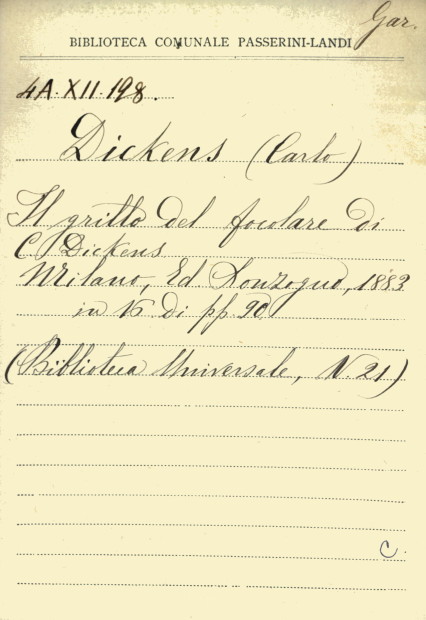 Gar.
BIBLIOTECA COMUNALE PASSERINI-LANDI
4A.XII.198.
Dickens (Carlo)
Il grillo del focolare di
C. Dickens
Milano, Ed Sonzogno, 1883
in 16 di pp. 90
(Biblioteca Universale, N. 21)
C.